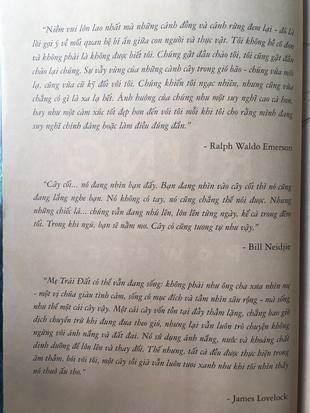 "Niềm vui lớn lao nhất mà những cánh đồng và cánh rừng đem lại - đó là
lời gợi ý về mối quan hệ bí ẩn giữa con người và thực vật. Tôi không hề cô đơn
và không phải là không được biết tới. Chúng gật đầu chào tôi, tôi cũng gật đầu
chào lại chúng. Sự vẫy vùng của những cành cây trong gió bão - chúng vừa mới
lạ, cũng vừa cũ kỹ đối với tôi. Chúng khiến tôi ngạc nhiên, nhưng cũng vừa
chẳng có gì là xa lạ hết. Ảnh hưởng của chúng như một suy nghĩ cao cả hơn,
hay như một cảm xúc tốt đẹp hơn đến với tôi mỗi khi tôi cho rằng mình đang
suy nghĩ chính đáng hoặc làm điều đúng đắn."
- Ralph Waldo Emerson
"Cây cối... nó đang nhìn bạn đấy. Bạn đang nhìn vào cây cối thì nó cũng
đang lắng nghe bạn. Nó không có tay, nó cũng chẳng thể nói được. Nhưng
những chiếc lá... chúng vẫn đang nhú lên, lớn lên từng ngày, kể cả trong đêm
tối. Trong khi ngủ, bạn sẽ nằm mơ. Cây cỏ cũng tương tự như vậy."
- Bill Neidjie
"Mẹ Trái Đất có thể vẫn đang sống: không phải như ông cha xưa nhìn mẹ
- một vị chúa giàu tình cảm, sống có mục đích và tầm nhìn sâu rộng - mà sống
như thể một cái cây vậy. Một cái cây vốn tồn tại đầy thầm lặng, chẳng bao giờ
dịch chuyển trừ khi đung đưa theo gió, nhưng lại vẫn luôn trò chuyện không
ngừng với ánh nắng và đất đai. Nó sử dụng ánh nắng, nước và khoáng chất
dinh dưỡng để lớn lên và thay đổi. Thế nhưng, tất cả đều được thực hiện trong
âm thầm, bởi với tôi, một cây sồi già vẫn luôn tươi xanh như khi tôi nhìn thấy
nó thuở ấu thơ."
- James Lovelock